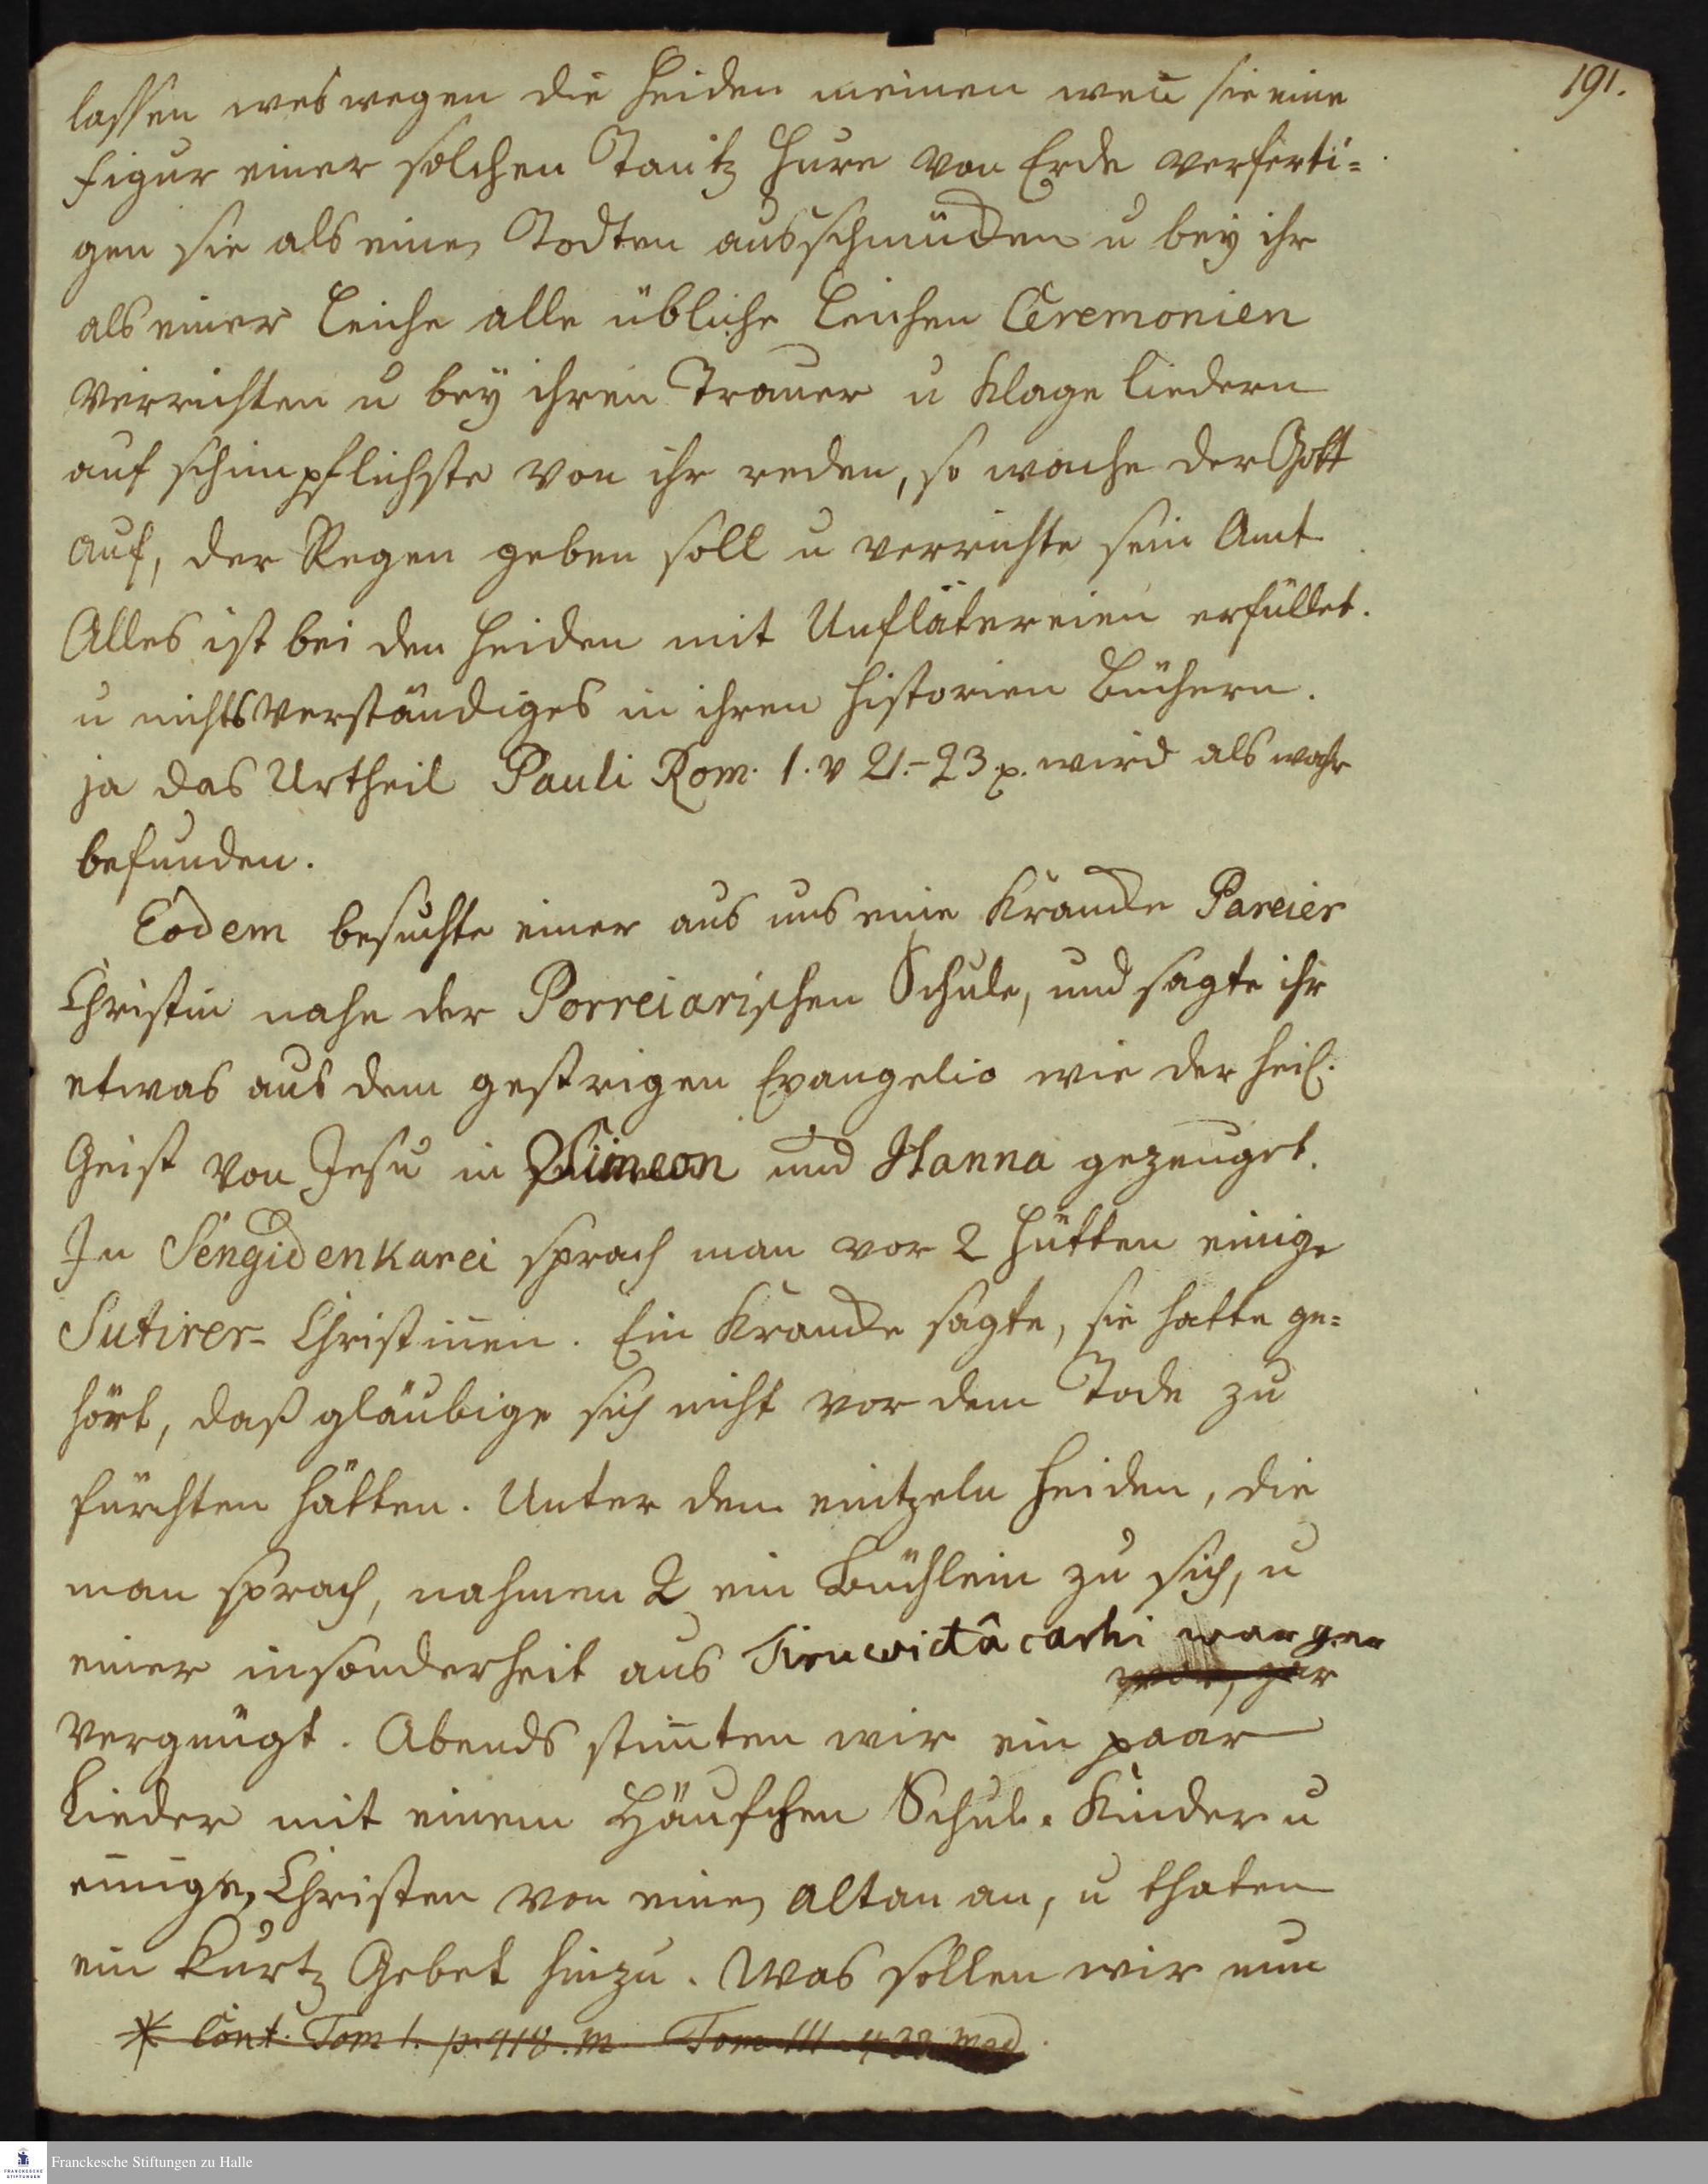 191.
lassen weswegen die Heiden meinen weñ sie eine
Figur einer solchen Tantz Hure von Erde verferti=
gen sie als einen Todten ausschmücken u bey ihr
als einer Leiche alle übliche Leichen Ceremonien
verrichten u bey ihren Trauer u Klage Liedern
auf schimpflichste von ihr reden, so wache der Gott
auf, der Regen geben soll u verrichte sein Amt
Alles ist bei den Heiden mit Unflätereien erfüllet.
u nichts verständiges in ihren Historien Büchern.
ja das Urtheil Pauli Rom. 1. v 21.-23. p. wird als wahr
befunden.
Eodem besuchte einer aus uns eine Krancke Pareier
Christin nahe der Porreiarischen Schule, und sagte ihr
etwas aus dem gestrigen Evangelio wie der Heil.
Geist von Jesu in Simeon und Hanna gezeuget.
In Sengidenkarei sprach man vor 2 Hütten einige
Sutirer- Christiñen. Ein Krancke sagte, sie hatte ge=
hört, daß gläubige sich nicht vor dem Tode zu
fürchten hätten. Unter den eintzeln Heiden, die
man sprach, nahmen 2 ein Büchlein zu sich, u
einer insonderheit aus Tiruwidâcarhi war gar
war, gar
vergnügt. Abends stim̃ten wir ein paar
Lieder mit einem Häufchen Schul-Kinder u
einigen Christen von einem Altan an, u thaten
ein kurtz Gebet hinzu. Was sollen wir nun
* Cont. Tom 1. p. 918. m. Tom III 433 med.
Franckesche Stiftungen zu Halle